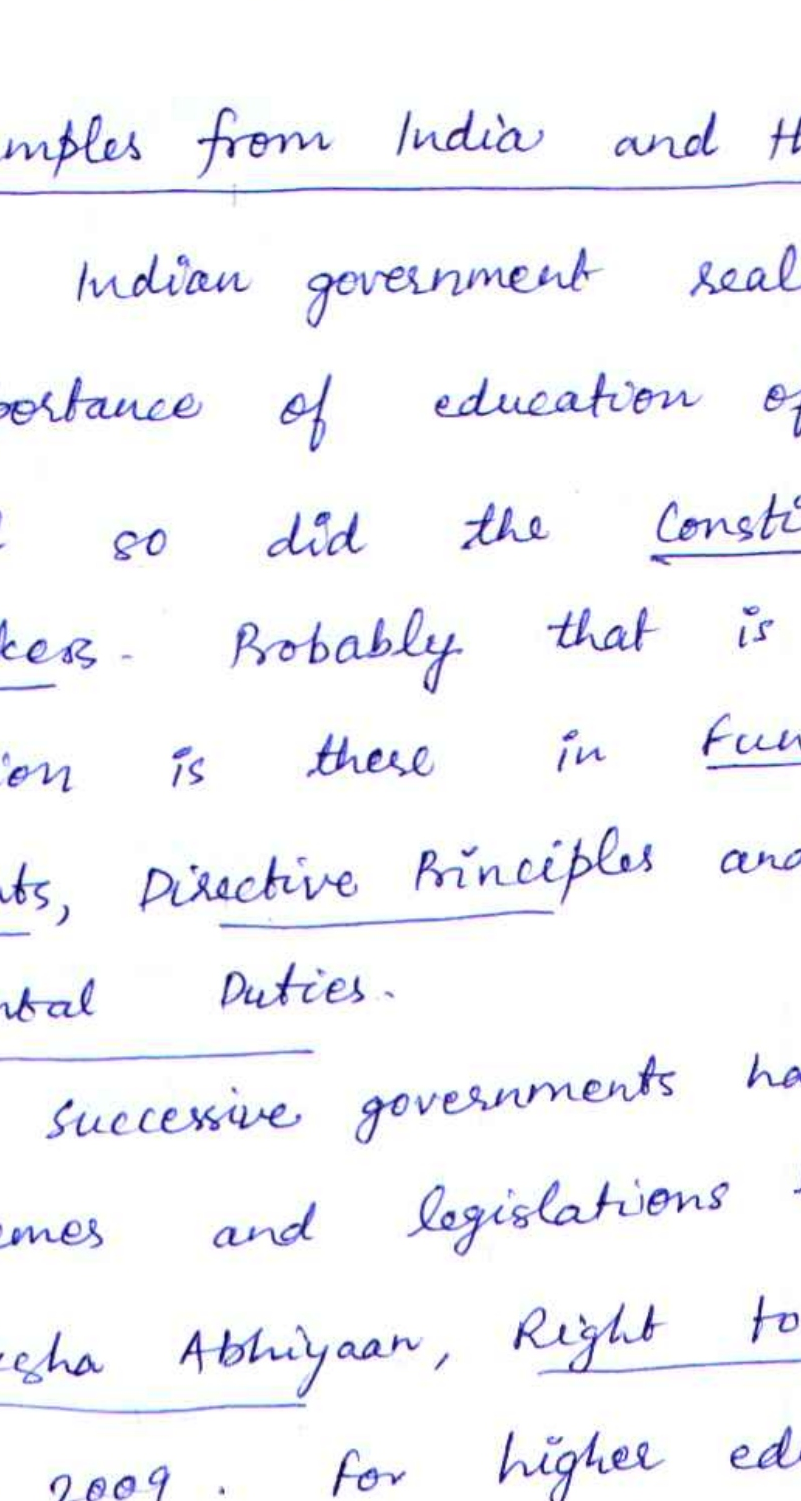 mples from India and H
Indian government real
portance of education of
so did the Consti
kers. Probably that is
ion is there in Fun
ts, Directive Principles and
ntal Duties.
Successive governments ha
emes and legislations
sha Abhiyaan, Right to
2009. For higher ed